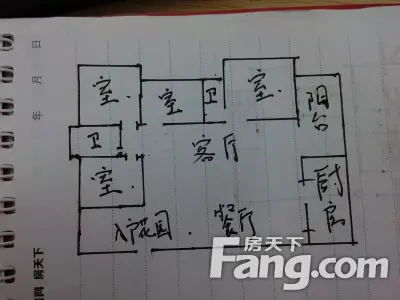 年 月 日
室
室
卫
室
阳台
卫
客厅
室
厨
入户花园
餐厅
房天下
Fang.com
房天下